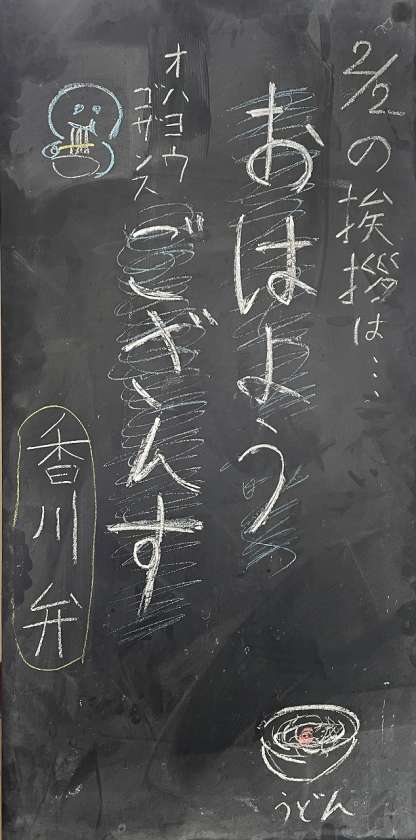 2/2の挨拶は…
おはよう
ござんす
オハヨウ
ゴザンス
香川弁
うどん